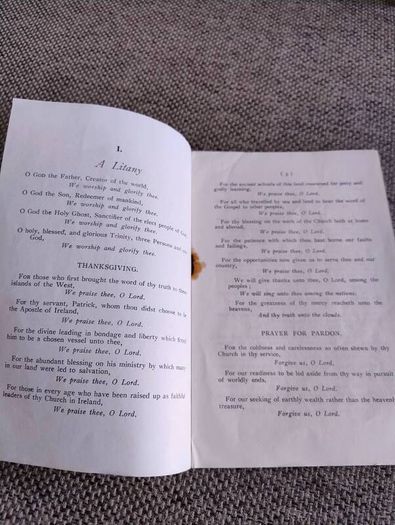 I.
A Litany
O God the Father, Creator of the world,
We worship and glorify thee.
O God the Son, Redeemer of mankind,
We worship and glorify thee.
O God the Holy Ghost, Sanctifier of the elect people of God,
We worship and glorify thee.
O holy, blessed, and glorious Trinity, three Persons and one
God,
We worship and glorify thee.
THANKSGIVING.
For those who first brought the word of thy truth to these
islands of the West,
We praise thee, O Lord.
For thy servant, Patrick, whom thou didst choose to be
the Apostle of Ireland,
We praise thee, O Lord.
For the divine leading in bondage and liberty which fitted
him to be a chosen vessel unto thee,
We praise thee, O Lord.
For the abundant blessing on his ministry by which many
in our land were led to salvation,
We praise thee, O Lord.
For those in every age who have been raised up as faithful
leaders of thy Church in Ireland,
We praise thee, O Lord.
( 3 )
For the ancient schools of this land renowned for piety and
godly learning,
We praise thee, O Lord.
For all who travelled by sea and land to bear the word of
the Gospel to other peoples,
We praise thee, O Lord.
For thy blessing on the work of the Church both at home
and abroad,
We praise thee, O Lord.
For the patience with which thou hast borne our faults
and failings,
We praise thee, O Lord.
For the opportunities now given us to serve thee and our
country,
We praise thee, O Lord.
We will give thanks unto thee, O Lord, among the
peoples;
We will sing unto thee among the nations.
For the greatness of thy mercy reacheth unto the
heavens,
And thy truth unto the clouds.
PRAYER FOR PARDON.
For the coldness and carelessness so often shewn by thy
Church in thy service,
Forgive us, O Lord.
For our readiness to be led aside from thy way in pursuit
of worldly ends,
Forgive us, O Lord.
For our seeking of earthly wealth rather than the heavenly
treasure,
Forgive us, O Lord.